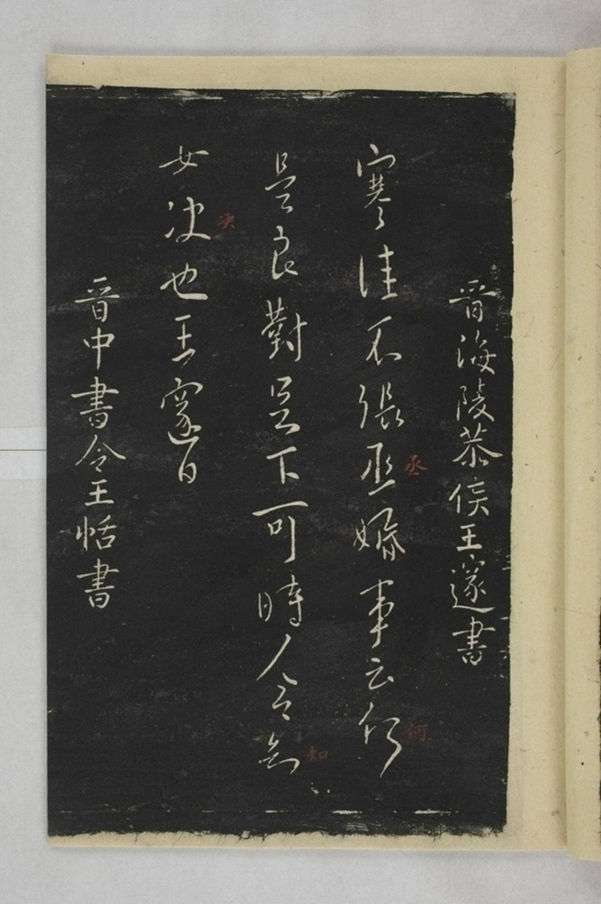 晉海陵恭侯王邃書
寒佳不張丞婚事云何
丞
何
是良對足下可時令知
知
女决也王邃白
决
晉中書令王恬書